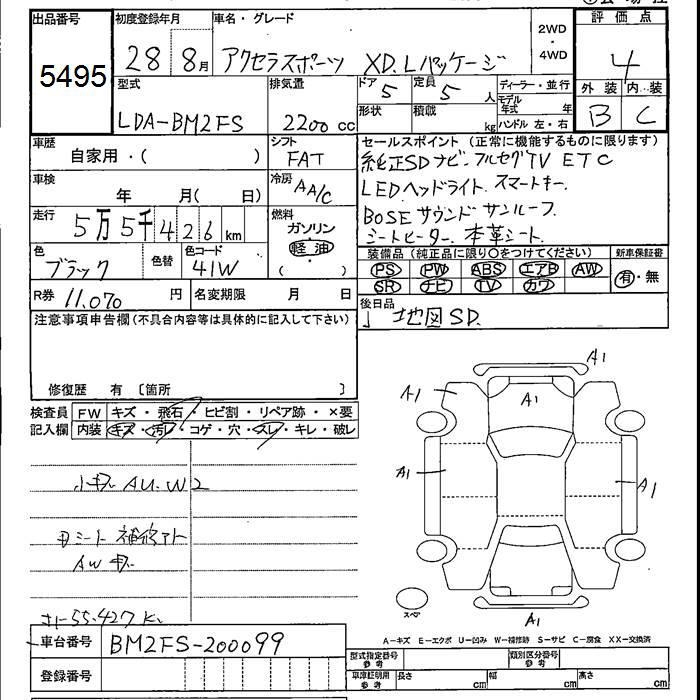 出品番号 初度登録年月 車名・グレード 2WD・4WD 評価点
5495 28年 8月 アクセラスポーツ XD.Lパッケージ 4
型式 排気量 ドア 5 定員 5人 ディーラー・並行 外装 内装
LDA-BM2FS 2200cc 形状 積載 kg モデル年式 年 ハンドル 左・右 B C
車歴 自家用・( ) シフト FAT セールスポイント (正常に機能するものに限ります)
純正SDナビ.フルセグTV ETC
車検 年 月( 日) 冷房 AA/C LEDヘッドライト.スマートキー.
走行 5万5千426km 燃料 ガソリン・軽油 ( ) BOSEサウンド サンルーフ.
シートヒーター.本革シート.
色 ブラック 色替 色コード 41W 装備品(純正品に限り○をつけてください) 新車保証書
PS PW ABS エアB AW 有・無
SR ナビ TV カワ
R券 11,070円 名変期限 月 日 後日品
地図SD.
注意事項申告欄(不具合内容等は具体的に記入して下さい)
修復歴 有 〔箇所 〕
検査員記入欄 FW キズ・飛石・ヒビ割・リペア跡・×要
内装 キズ・汚レ・コゲ・穴・スレ・キレ・破レ
A1
A1 A1
A1 A1
小キズ AU.W2
シート 補修アト
AW キズ
スペア A1
55.427K
A-キズ E-エクボ U-凹み W-補修跡 S-サビ C-腐食 XX-交換済
車台番号 BM2FS-200099
型式指定番号 参考 類別区分番号 参考
登録番号 車庫証明用 参考 長さ cm 幅 cm 高さ cm